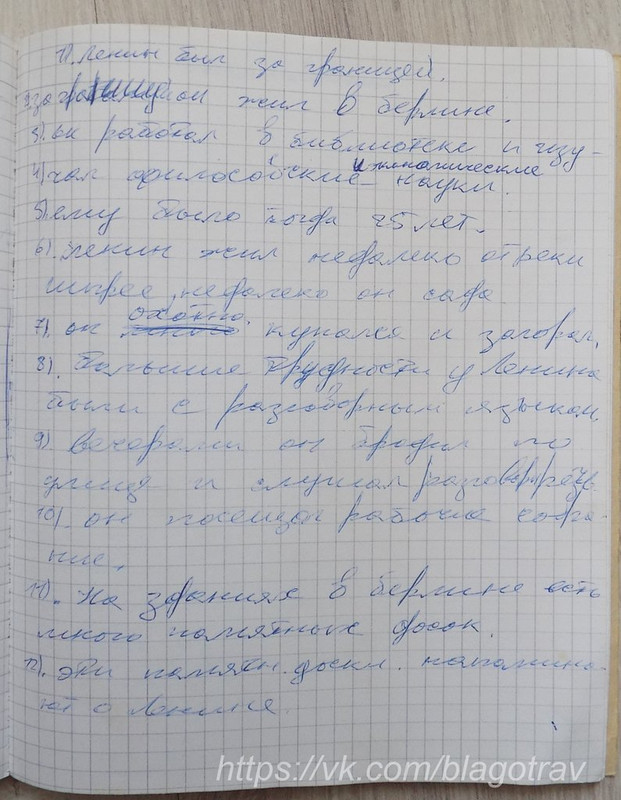 1). Ленин был за границей.
2). он жил в берлине.
3). он работал в библиотеке и изу-
4) чал философские и экономические науки.
5). ему было тогда 25 лет.
6). Ленин жил недалеко от реки
шпрее, недалеко от сада
7). он охотно купался и загорал.
8). большие трудности у Ленина
были с разговорным языком.
9). вечерами он бродил по
улице и слушал разговор. речь.
10). он посещал рабочие собра-
ние.
11). На зданиях в берлине есть
много памятных досок.
12). эти памятн. доски. напомина-
ют о Ленине.
https://vk.com/blagotrav